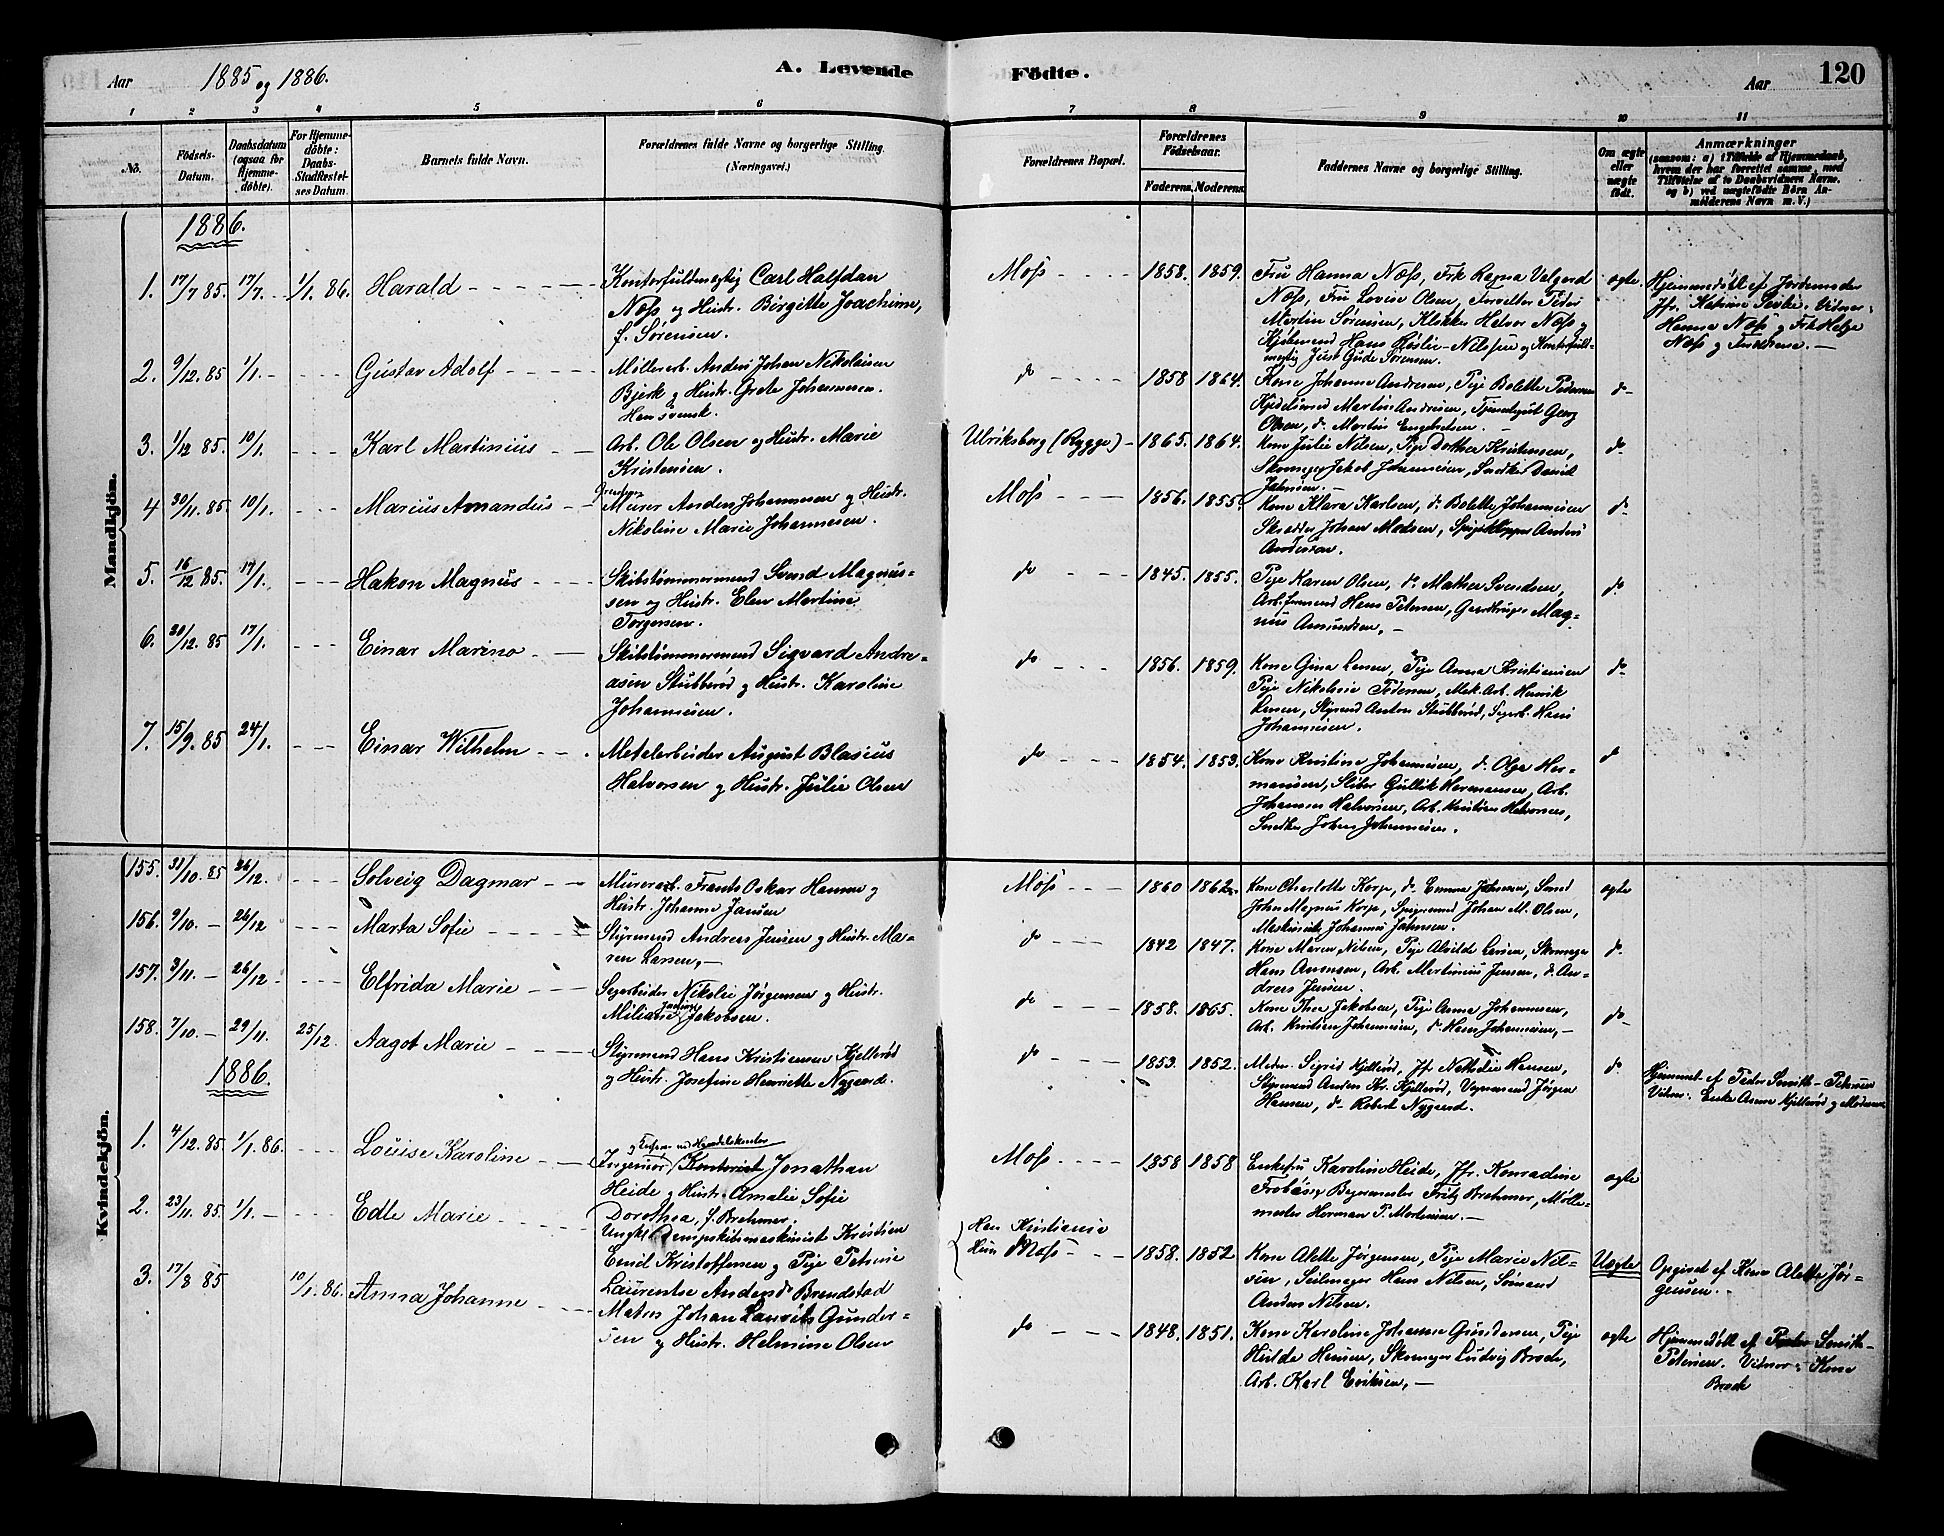 Aar 1885 og 1886. A. Levende
Födte. Aar 120
1 2 3 4 5 6
7 8 9 10 11
No.
Födsels-Datum.
Daabsdatum (ogsaa for Hjemme-döbte).
For Hjemme-döbte: Daabs-Stadfæstel-ses Datum.
Barnets fulde Navn.
Forældrenes fulde Navne og borgerlige Stilling. (Næringsvei.)
Forældrenes Bopæl.
Forældrenes Födselsaar.
Faderens. Moderens.
Faddernes Navne og borgerlige Stilling.
Om ægte eller uægte födt.
Anmærkninger
(saasom: a) i Tilfælde af Hjemmedaab,
hvem der har forrettet samme, med
Tilföielse af to Daabsvidners Navne,
og b) ved uægtefödte Börn An-
melderens Navn m. V.)
Mandkjön.
1886.
1. 17/7 85. 17/7 1/1 86. Harald
Kontorfuldmægtig Carl Halfdan
Næss og Hustr. Birgitte Joachime,
f. Sørensen.
Moss 1858. 1859.
Fru Hanna Næss, Frk Ragna Valgerd
Næss, Fru Lovise Olsen, Forvalter Peder
Martin Sørensen, Klokker Halvor Næss og
Kjøbmand Hans Nilssen og Kontorfuld-
mægtig Just Gude Sørensen.
ægte
Hjemmedöbt af Jordemoder
Jfr. Katrine Vidner:
Hanna Næss og Frk Helga
Næss og Faderen.
2. 9/12. 85 1/1. Gustav Adolf
Möllerarb. Anders Johan Nikolaisen
Bjerk og Hustr. Grete Johannesen.
Han svensk.
do 1858 1864.
Kone Johanne Andresen, Pige Bolette Pedersen
Kjedelsmed Martin Andresen, Georg
Olsen, do Martin Engebretsen.
do
3. 1/12 85. 10/1. Karl Martinius
Arb. Ole Olsen og Hustr. Marie
Kristensen.
Ulriksborg (Rygge) 1865. 1864.
Kone Julie Nilsen, Pige Dorthea Kristensen,
Skomager Jakob Johannesen, Snedker David
Jahnsen.
do
4 30/11. 85. 10/1. Marius Amandus
Murer Anders Johannesen og Hustr.
Nikoline Marie Johannesen.
Moss 1856. 1855.
Kone Klara Karlsen, do Bolette Johannesen
Skrædder Johan Madsen, Anders
Andersen.
do
5. 16/12 85. 17/1. Hakon Magnus
Skibstömmermand Svend Magnus-
sen og Hustr. Elen Martine
Torgersen.
do 1845. 1855.
Pige Karen Olsen, do Mathea Svendsen,
Arb.formand Hans Petersen, Mag-
nus Amundsen.
do
6. 20/12. 85 17/1. Einar Marino
Skibstömmermand Sigvard Andre-
asen Stubberöd og Hustr. Karoline
Johannesen.
do 1856. 1859.
Kone Gina Larsen, Pige Anna Kristiansen
Pige Nikoline Pedersen, Mek. Arb. Henrik
Larsen, Styrmd Anton Stubberöd, Sagarb. Hans
Johannesen.
do
7. 15/9. 85 24/1. Einar Wilhelm
Metalarbeider August Blasius
Halvorsen og Hustr. Julie Olsen
do 1854. 1853.
Kone Kristine Johannesen, do Olga Her-
mansen, Sliber Gullik Hermansen, Arb.
Johannes Halvorsen, Arb. Kristian Halvorsen,
Snedker Johan Johannesen.
do
Kvindekjön.
155. 31/10. 85 26/12. Solveig Dagmar
Murerarb. Frants Oskar Hansen og
Hustr. Johanne Jansen
Moss 1860 1862.
Kone Charlotte Korp, do Emma Jahnsen, Smed
John Magnus Korp, Johan M. Olsen,
Maskinist Johannes Jahnsen.
ægte
156. 9/10. 26/12 Marta Sofie
Styrmand Andreas Jensen og Hustr. Ma-
ren Larsen,
do 1842 1847.
Kone Maren Nilsen, Pige Alvilde Larsen, Skomager
Hans Aronsen, Arb. Martinius Jensen, do An-
dreas Jensen.
do
157. 3/11. 26/12. Elfrida Marie
Sagarbeider Nikolai Jörgensen og Hustr.
Milianne Jakobsen.
do 1858. 1865.
Kone Thea Jakobsen, Pige Anna Johannesen,
Arb. Kristian Johannesen, do Hans Johannesen,
do
158. 7/10. 29/11. 25/12. Aagot Marie
Styrmand Hans Kristiansen Kjelleröd
og Hustr. Josefine Henriette Nygaard.
do 1853. 1852.
Madm. Sigrid Kjelleröd, Jfr. Nathalie Hansen,
Styrmand Anders Kr. Kjelleröd, Vognmand Jörgen
Hansen, do Robert Nygaard.
do
Hjemmed. af Peder Smith-Petersen
Vidner: Enke Anne Kjelleröd og Moderen
1886.
1. 4/12. 85. 1/1. 86. Louise Karoline
Ingeniör Kontorist Jonathan
Heide og Hustr. Amalie Sofie
Dorothea, f. Brehmer.
Moss 1858 1858
Enkefru Karoline Heide, Jfr. Konradine
Bagermester Fritz Brehmer, Mølle-
mester Herman P. Mortensen.
ægte
2. 23/11. 85. 1/1. Edle Marie
Ungkl. Dampskibsmaskinist Kristian
Emil Kristoffersen og Pige Petrine
Laurentse Andersdr. Brendstad
Han Kristiania
Hun Moss 1858. 1852
Kone Alette Jörgensen, Pige Marie Nil-
sen, Seilmager Hans Nilsen, Sömand
Anders Nilsen.
Uægte
Opgivet af Kone Alette Jör-
gensen.
3. 17/8 85 10/1. 86. Anna Johanne
Matros Johan Laurits Gunder-
sen og Hustr. Helmine Olsen
do 1848. 1851.
Kone Karoline Johanne Gundersen, Pige
Hulda Hansen, Skomager Ludvig Brode,
Arb. Karl Eriksen,
ægte
Hjemmedöbt af Peder Smith-
Petersen. Vidner: Kone
Brode